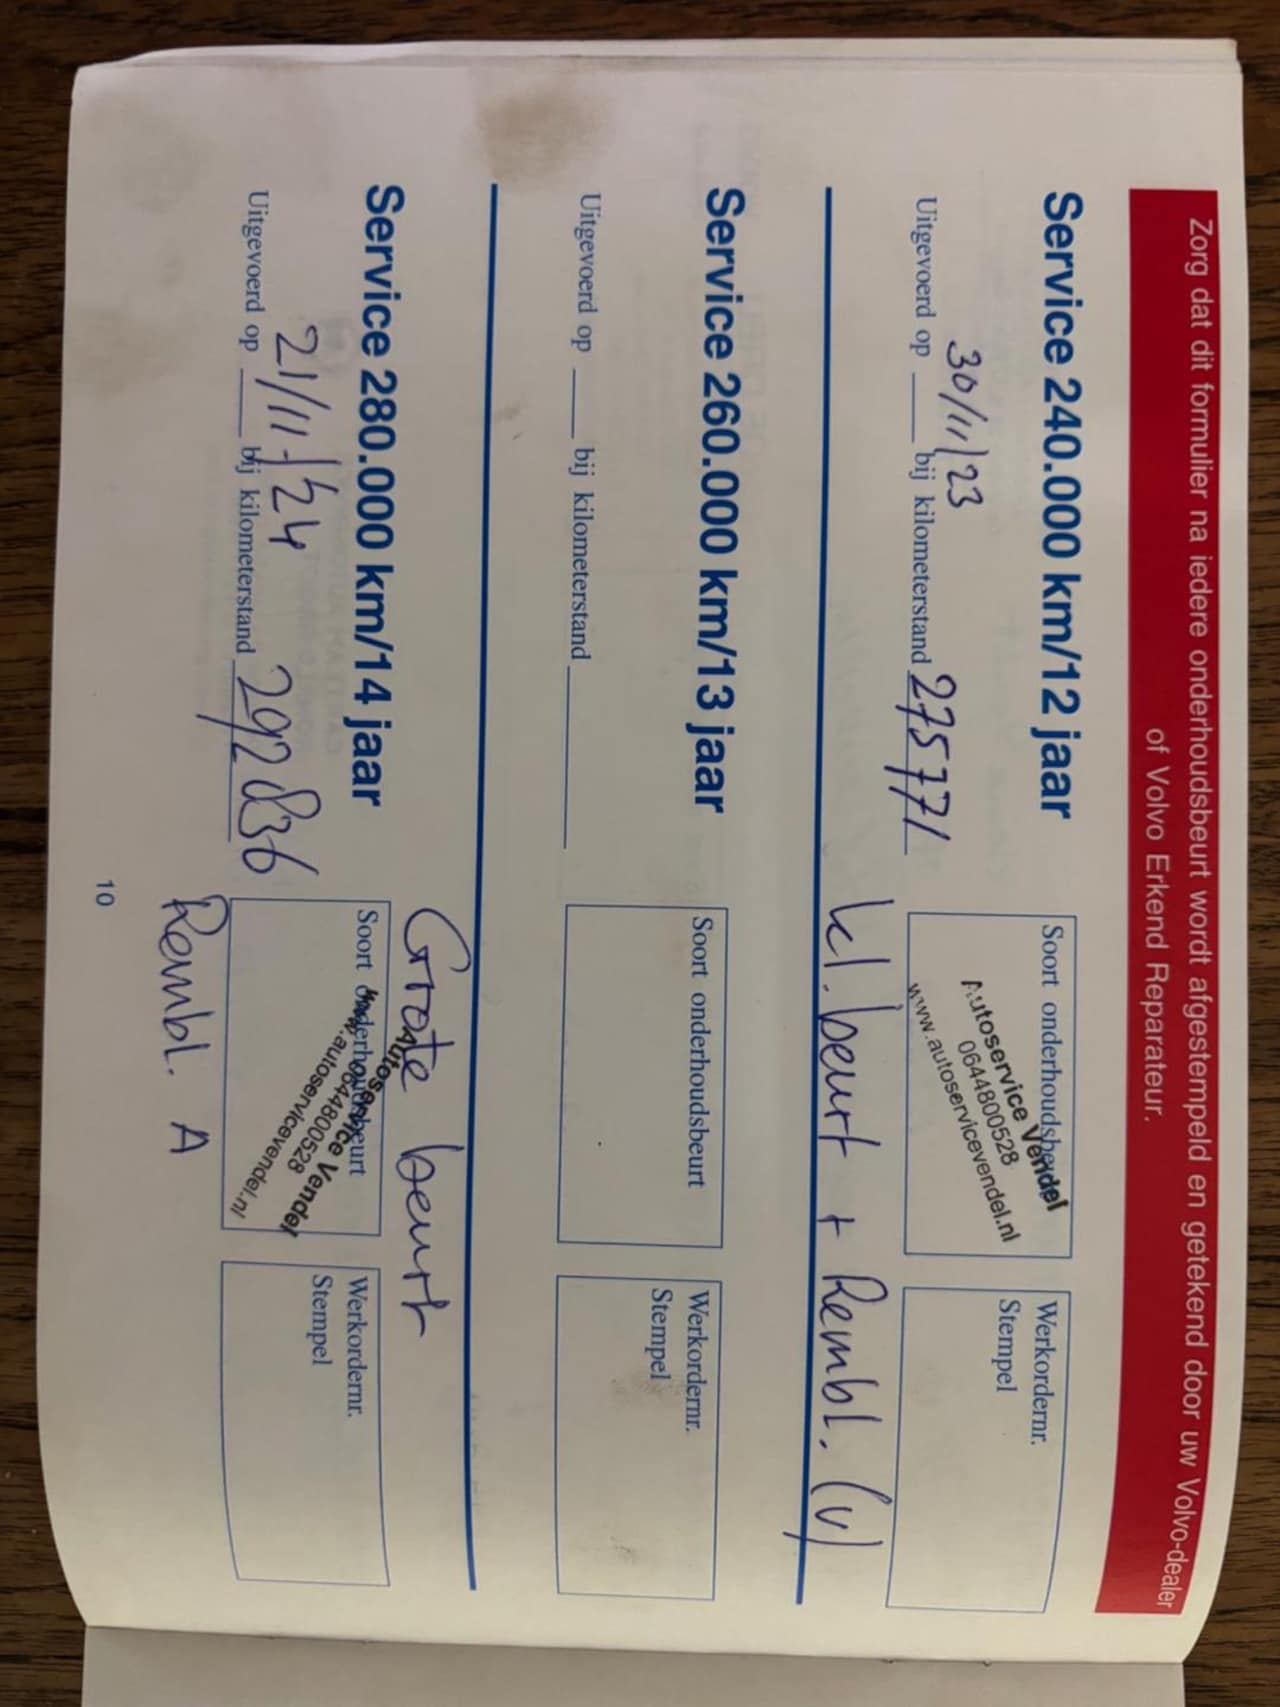 Zorg dat dit formulier na iedere onderhoudsbeurt wordt afgestempeld en getekend door uw Volvo-dealer
of Volvo Erkend Reparateur.
Service 240.000 km/12 jaar
30/11/23 275771
Uitgevoerd op ____ bij kilometerstand ____
Soort onderhoudsbeurt
Autoservice Vendel
0644800528
www.autoservicevendel.nl
Werkordernr.
Stempel
kl. beurt + Rembl. (v)
Service 260.000 km/13 jaar
Uitgevoerd op ____ bij kilometerstand ____
Soort onderhoudsbeurt
Werkordernr.
Stempel
Grote beurt
Service 280.000 km/14 jaar
21/11/24 292836
Uitgevoerd op ____ bij kilometerstand ____
Soort onderhoudsbeurt
Autoservice Vendel
0644800528
www.autoservicevendel.nl
Werkordernr.
Stempel
Rembl. A
10